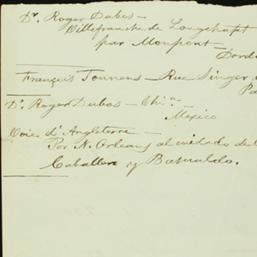 Dr. Roger Dubos –
Villefranche de Longchapt
par Monpont –
Dord
François Tounens Rue Singer
Pa
Dr. Roger Dubos – Chi.a –
Mexico
Voie d'Angleterre –
Por N. Orleans al cuidado de
Caballero y Basualdo.